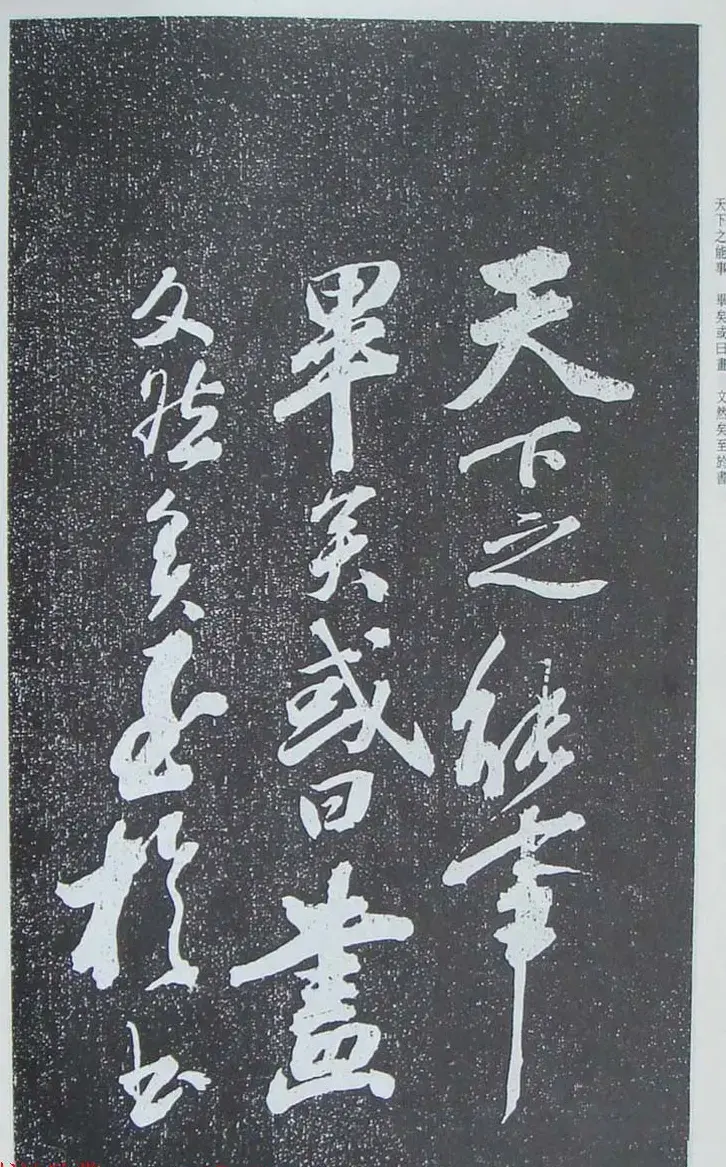 天下之能事
畢矣或曰畫
文然矣至於書
天下之能事 畢矣或曰畫 文然矣至於書